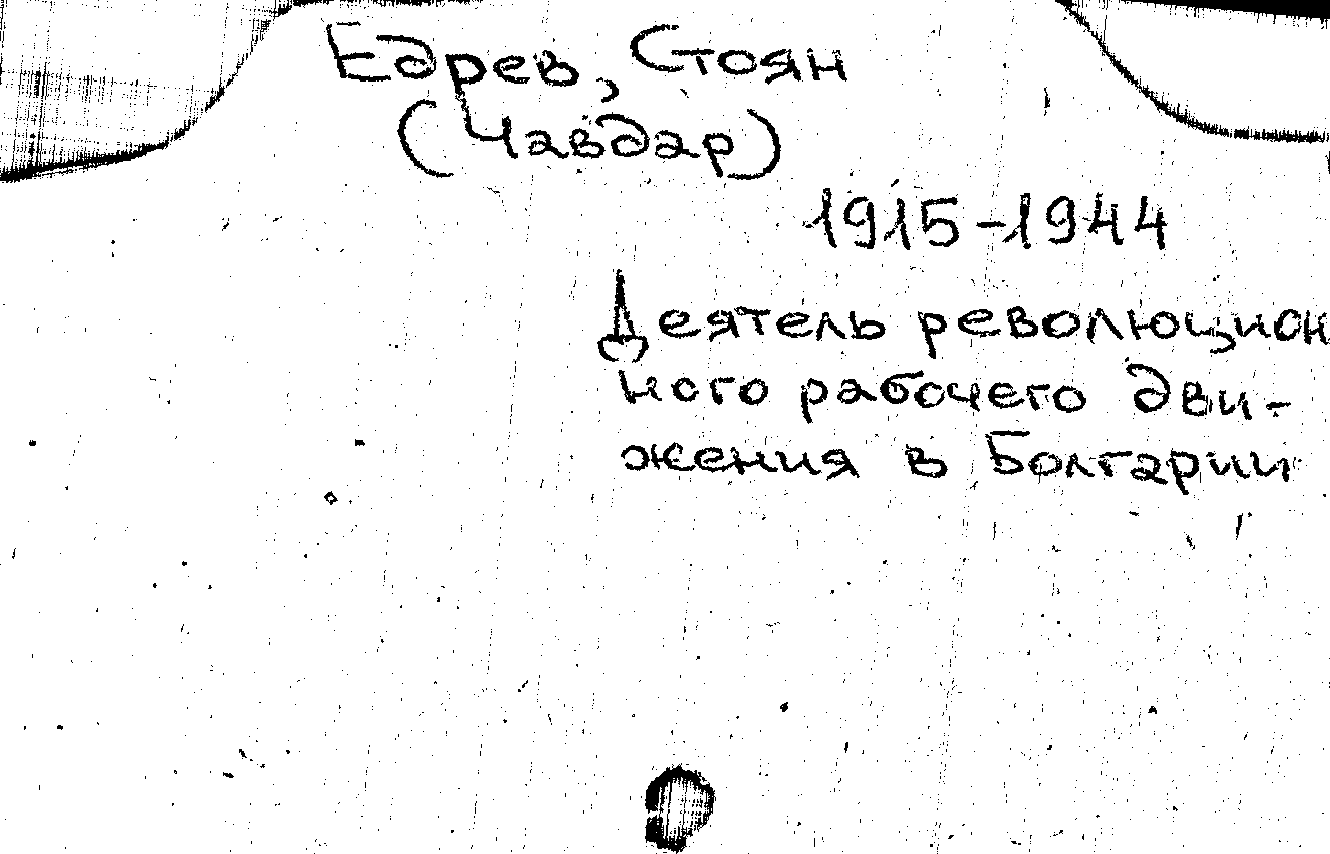 Едрев, Стоян
(Чавдар)
1915-1944
Деятель революцион
ного рабочего дви-
жения в Болгарии